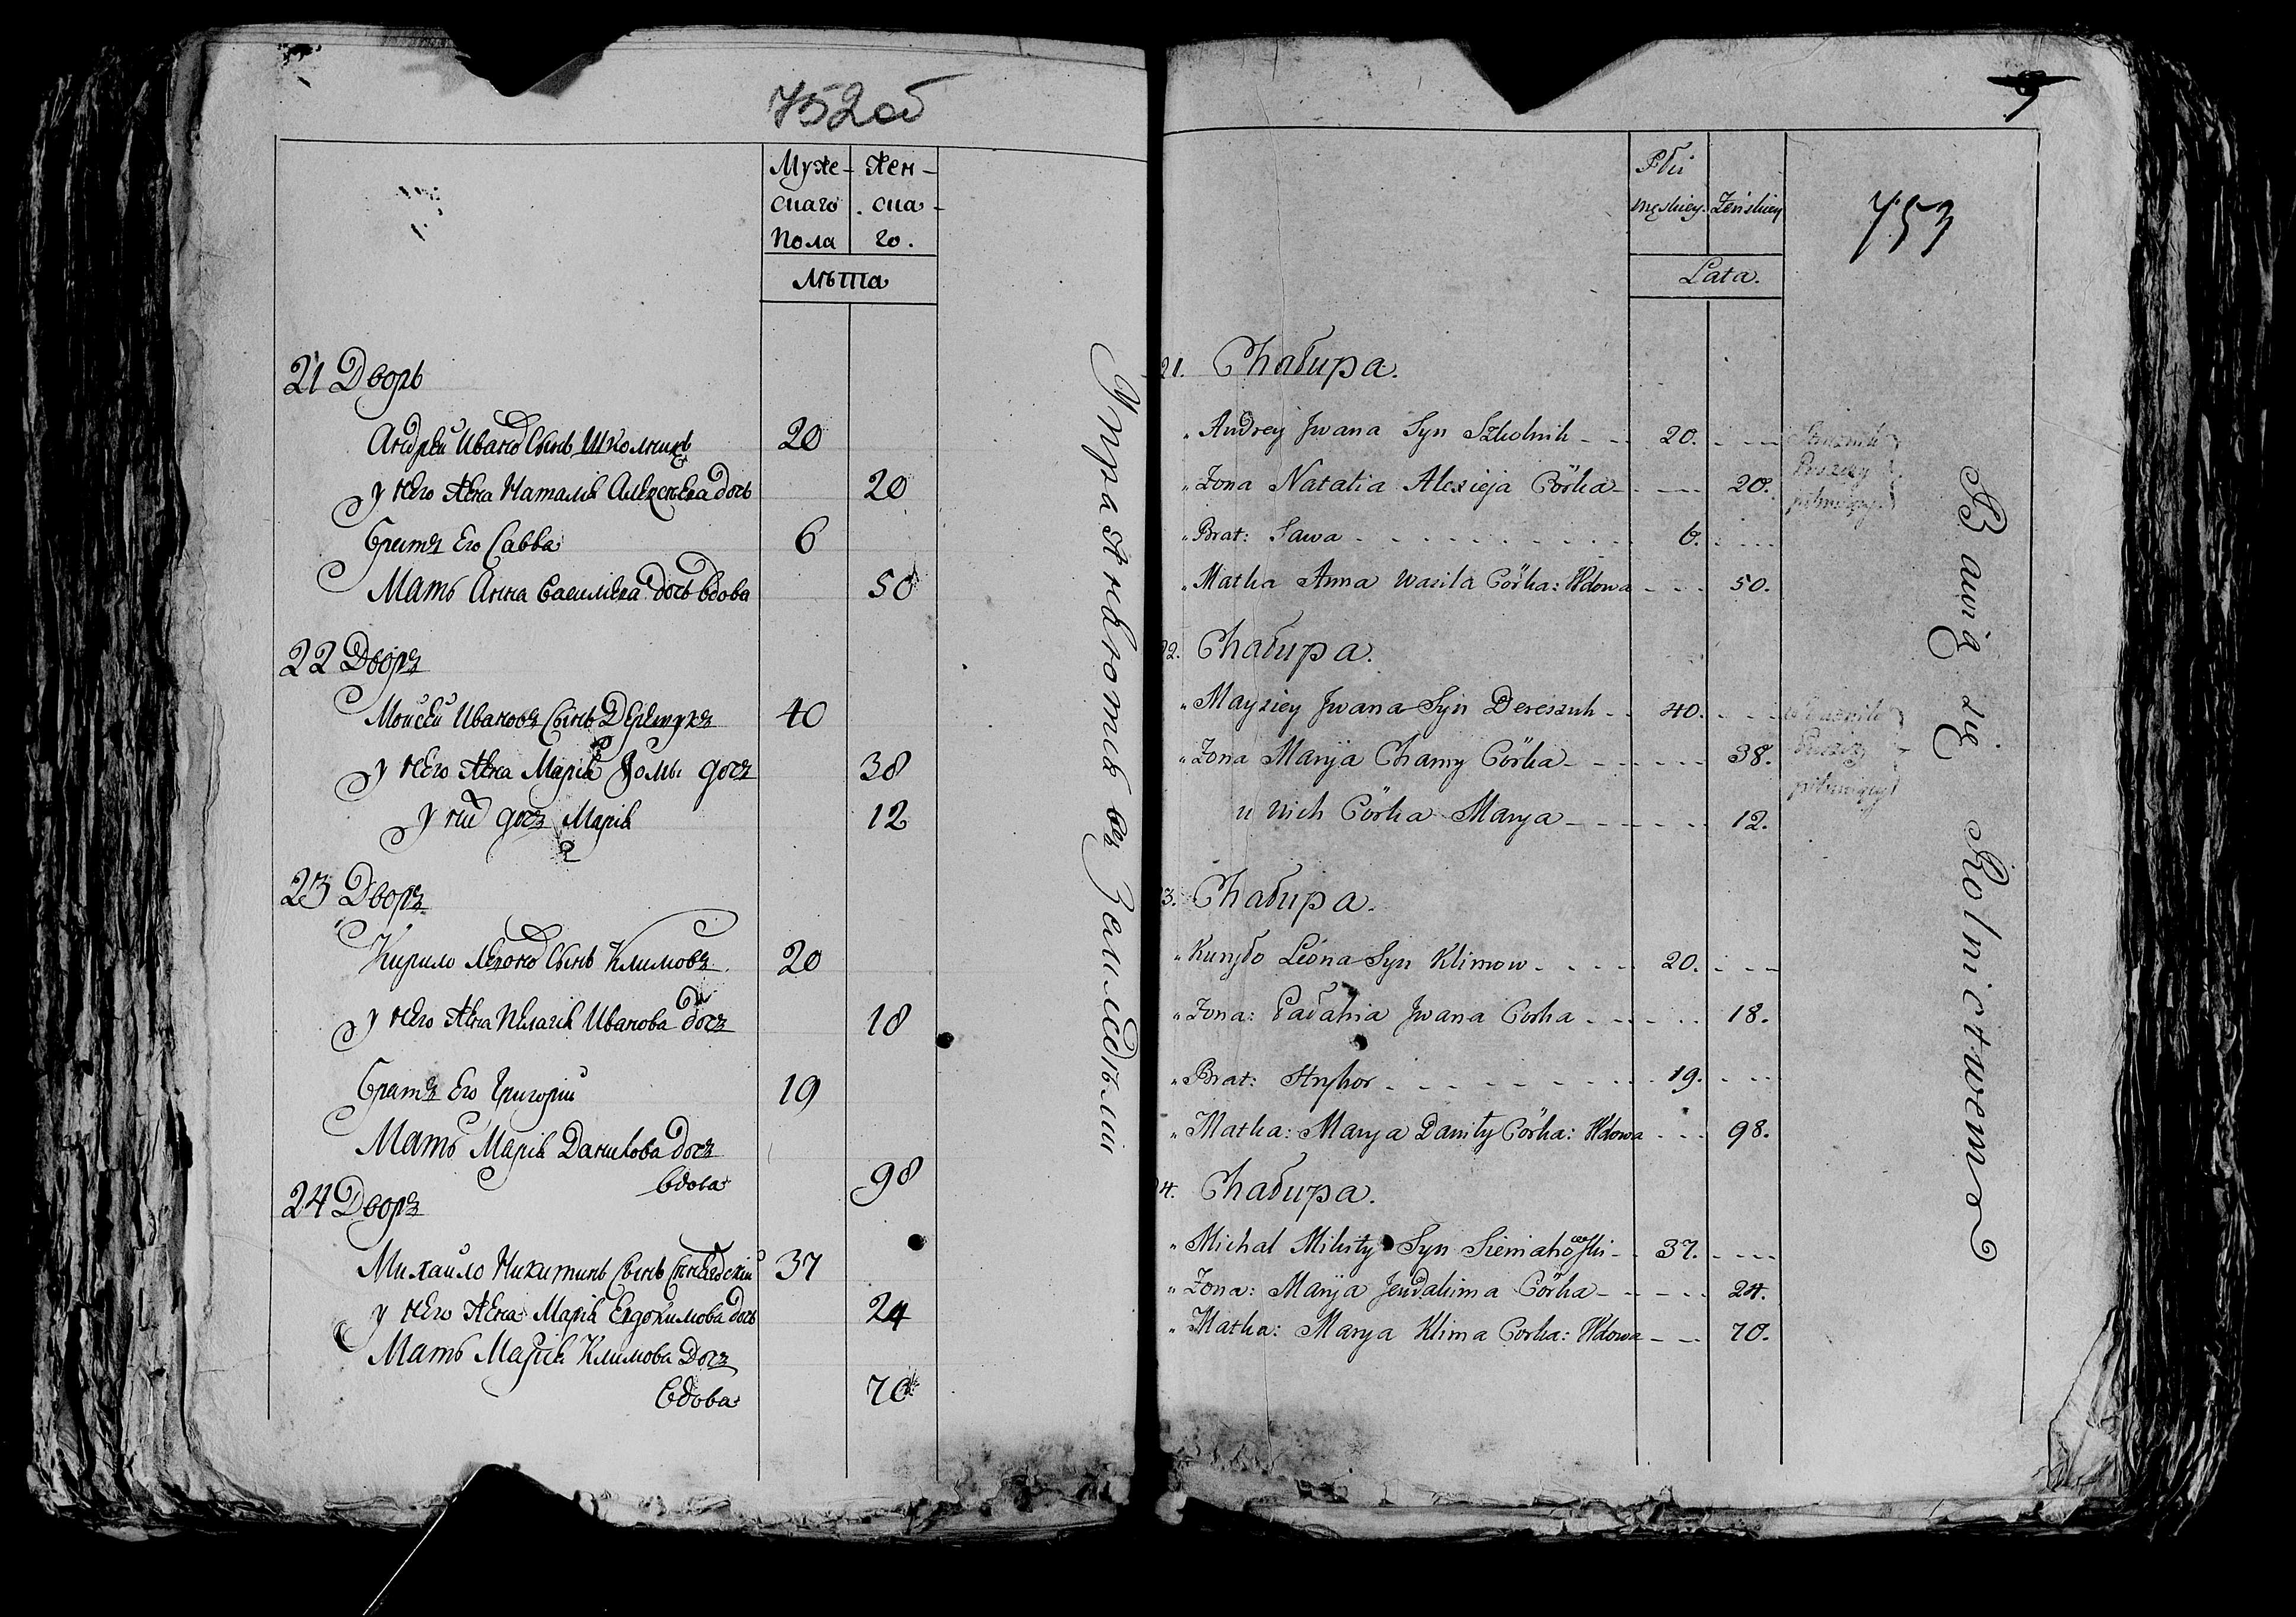 752об
Муже- Жен-
скаго ска-
Пола го.
Лѣта
21 Дворъ
Андрей Иванов Сынъ Школникъ 20
у Него Жена Наталія Алексѣева дочь 20
Братъ Его Савва 6
Мать Анна Василіева Дочь вдова 50
22 Дворъ
Моисей Ивановъ Сынъ Дерешукъ 40
у Него Жена Марія Фомы дочъ 38
у ний дочъ Марія 12
23 Дворъ
Кирило Леонов Сынъ Климовъ 20
у Него Жена Пелагія Иванова дочъ 18
Братъ Его Григорий 19
Мать Марія Данилова Дочъ
вдова 98
24 Дворъ
Михаило Никитинъ Сынъ 37
у Него Жена Марія Евдокимова дочь 24
Мать Марія Климова Дочъ
вдова 70
Упражняютса въ Земледѣліи
753
Płci
męskiey. Żeńskiey
Lata.
21. Chałupa.
" Andrey Jwana Syn Szkolnik - - 20. - - -
" Żona Natalia Alexieja Córka - - - - 20.
" Brat: Sawa - - - - - - - - - 6. - - -
" Matka Anna Wasila Córka: Wdowa - - - 50.
22. Chałupa.
" Mayziey Jwana Syn Dereszuk - - 40. - - -
" Żona Marýa Chamy Córka - - - - - - 38.
u nich Córka Marya - - - - - - 12.
23. Chałupa.
" Kuryło Léona Syn Klimow - - - - 20. - - -
" Żona: Pałahia Jwana Corka - - - - - 18.
" Brat: Hryhor - - - - - - - - - 19. - - -
" Matka: Marya Daniły Córka: Wdowa - - - 98.
24. Chałupa.
" Michał Mikity Syn Siemiahowski - - 37. - - -
" Żona: Marýa Jeudakima Córka - - - - - 24.
" Matka: Marya Klima Corka: Wdowa - - - 70.
Bawią się Rolnictwem